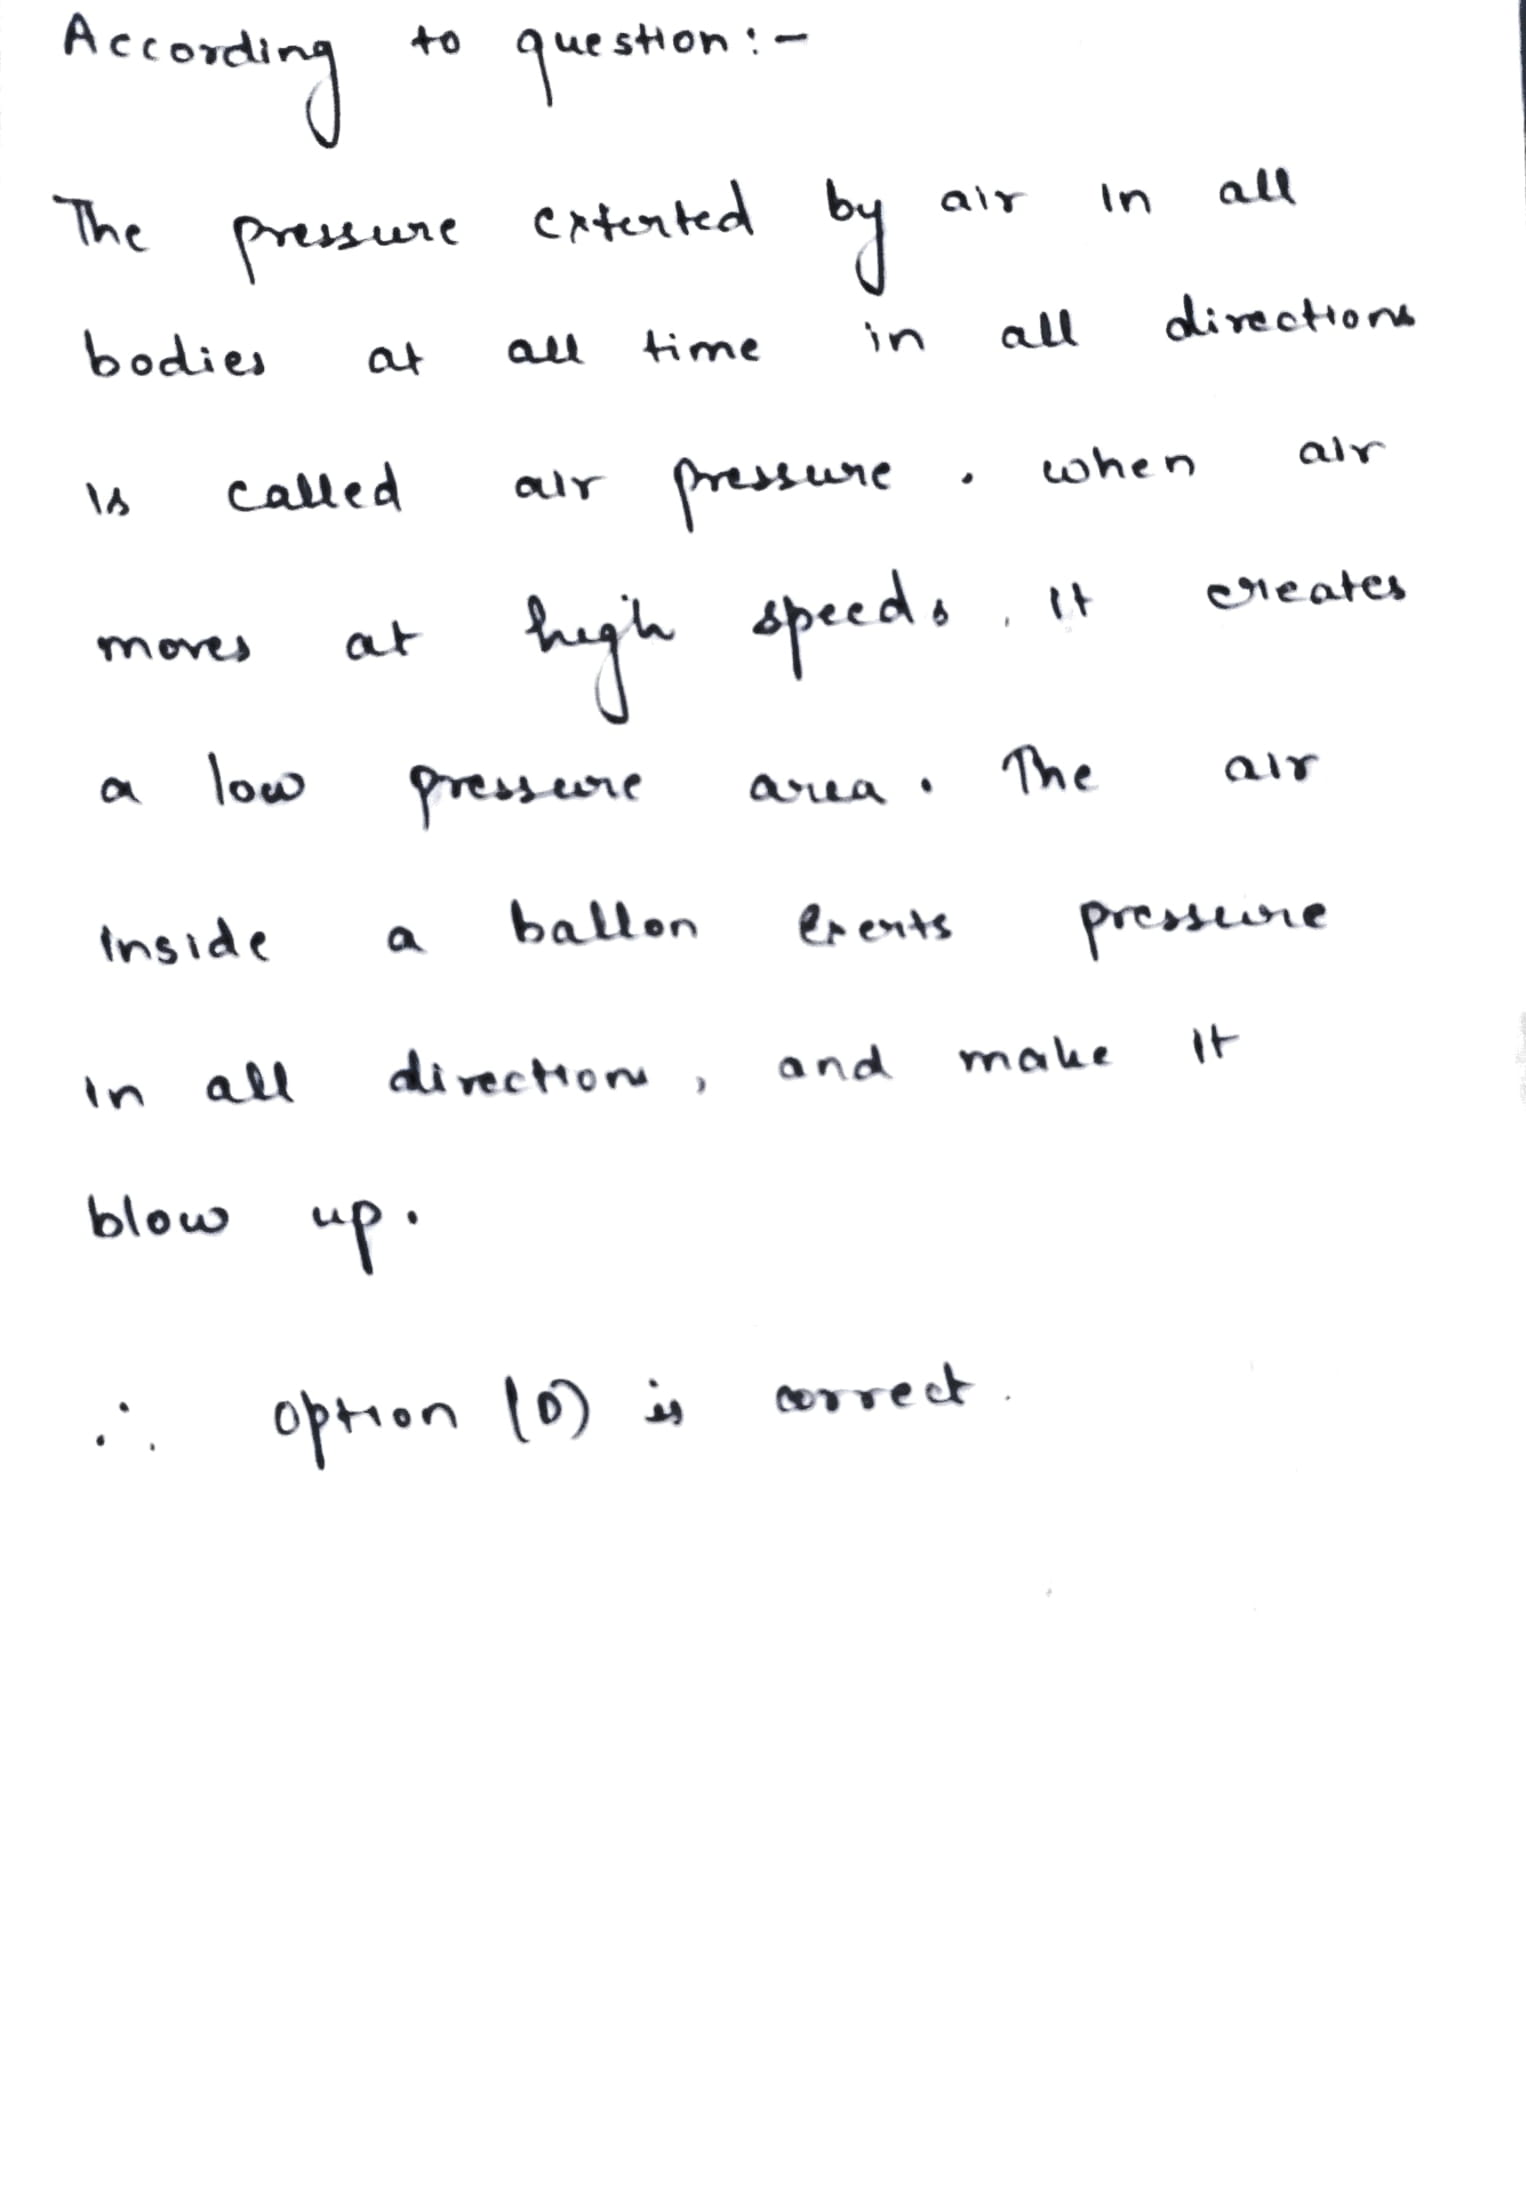 According to question:-
The pressure exterted by air in all
bodies at all time in all directions
is called air pressure. when air
moves at high speeds, it creates
a low pressure area. The air
inside a ballon exerts pressure
in all directions, and make it
blow up.
∴ option (D) is correct.